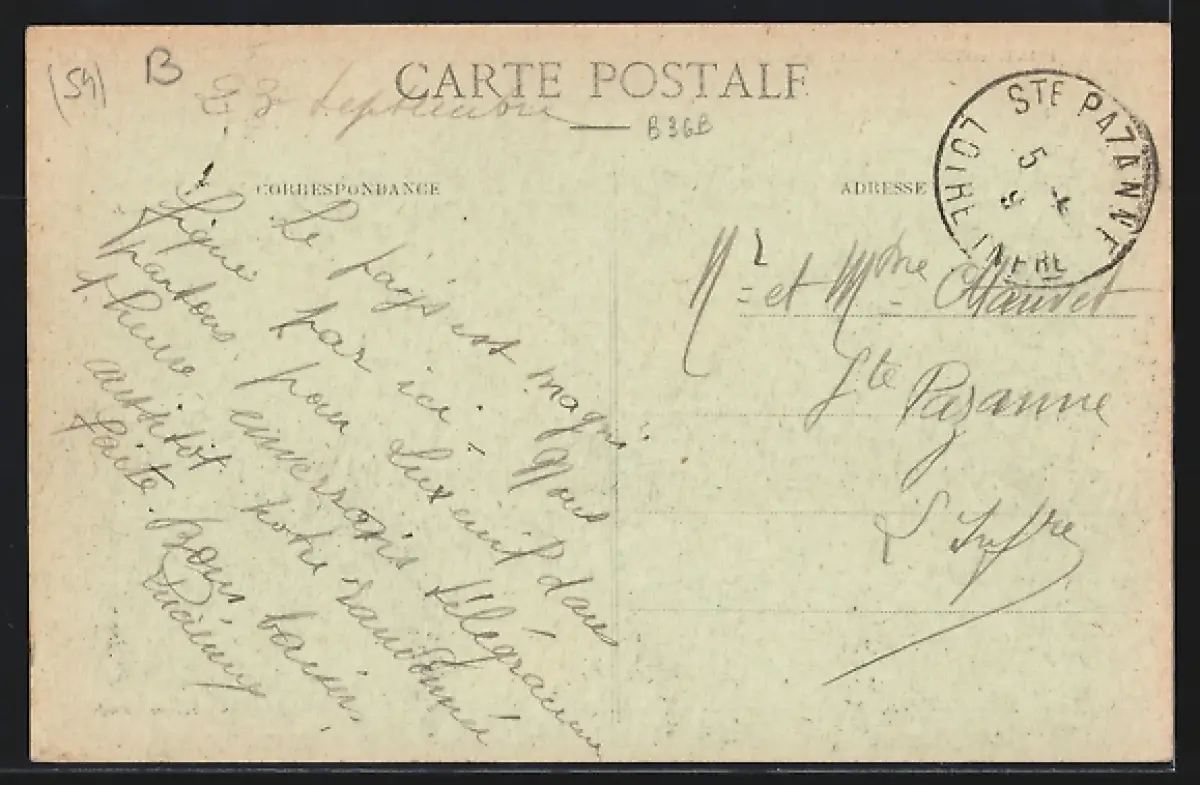 (54)
B
23 Septembre
CARTE POSTALE
B36B
CORRESPONDANCE
ADRESSE
STE PAZANNE
5
LOIRE INFRE
Le pays est magni
fique par ici. Nous
partons pour Luxeuil dans
1 heure enverrons télégramme
aussitôt notre randonnée
faite. Bons baisers
Mr et Mme Chauvet
Ste Pazanne
L Infre